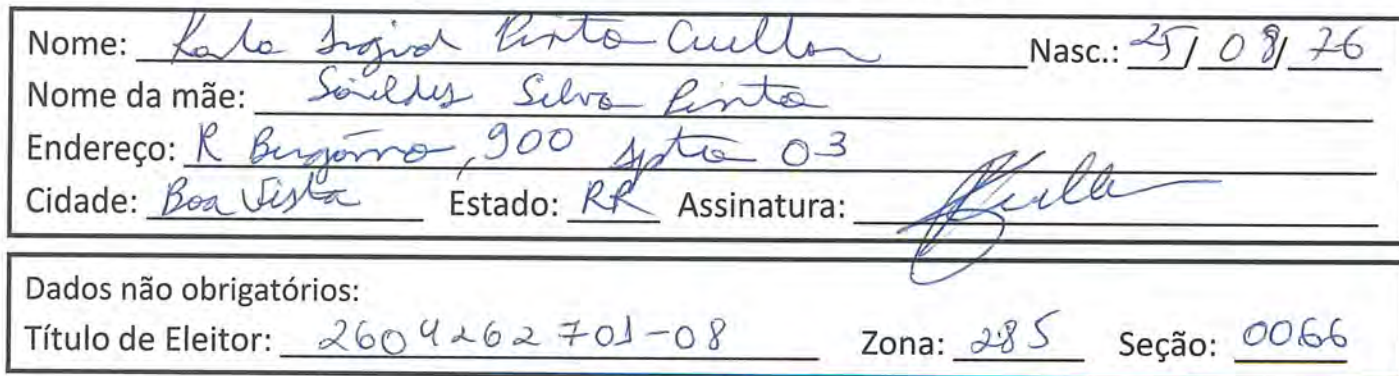 Nome: Karla Ingrid Pinto Cuellar Nasc.: 25/08/76
Nome da mãe: Silva Pinto
Endereço: R Bergamo, 900 apto 03
Cidade: Boa Vista Estado: RR Assinatura: Cuellar
Dados não obrigatórios:
Título de Eleitor: 2604262701-08 Zona: 285 Seção: 0066